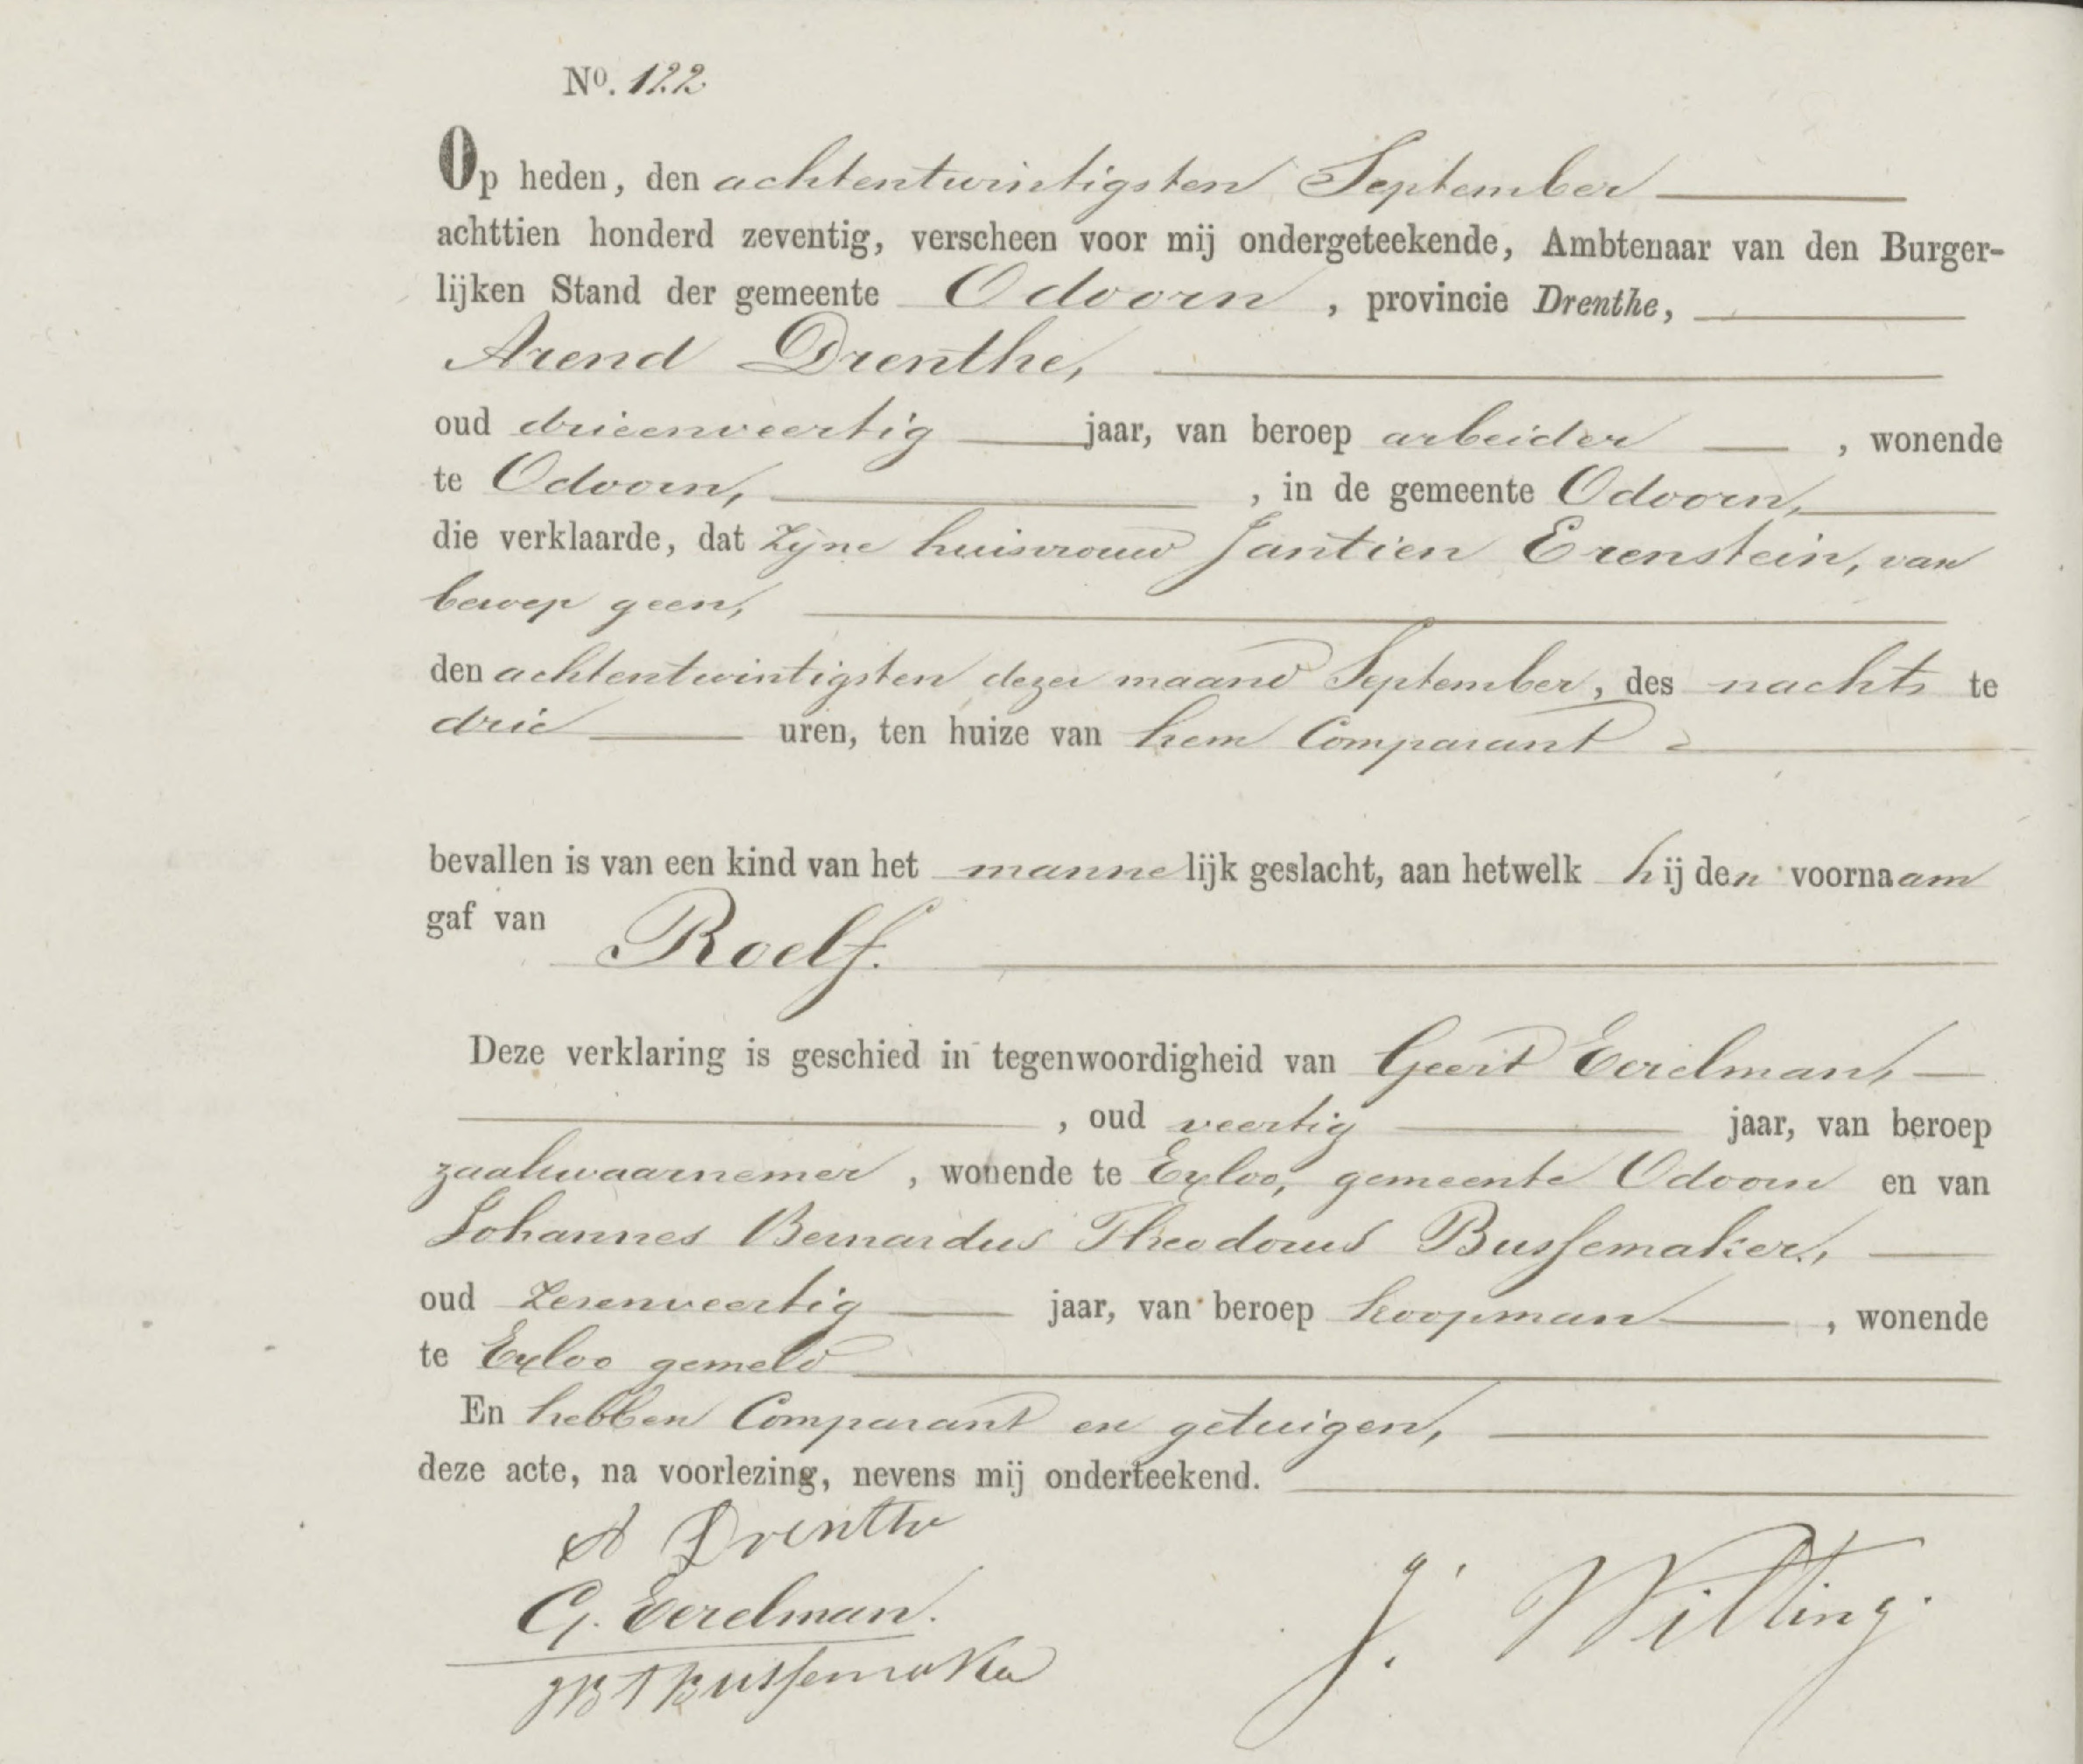 No. 122
Op heden, den achtentwintigsten September
achttien honderd zeventig, verscheen voor mij ondergeteekende, Ambtenaar van den Burger-
lijken Stand der gemeente Odoorn, provincie Drenthe,
Arend Drenthe,
oud drieenveertig jaar, van beroep arbeider, wonende
te Odoorn, , in de gemeente Odoorn,
die verklaarde, dat zijne huisvrouw Jantien Erenstein, van
beroep geen,
den achtentwintigsten dezer maand September, des nachts te
drie uren, ten huize van hem Comparant
bevallen is van een kind van het mannelijk geslacht, aan hetwelk hij den voornaam
gaf van Roelf.
Deze verklaring is geschied in tegenwoordigheid van Geert Eerelman,
, oud veertig jaar, van beroep
zaakwaarnemer, wonende te Exloo, gemeente Odoorn en van
Johannes Bernardus Theodorus Bussemaker,
oud zesenveertig jaar, van beroep koopman, wonende
te Exloo gemeld
En hebben Comparant en getuigen,
deze acte, na voorlezing, nevens mij onderteekend.
A Drenthe
G. Eerelman.
JBT Bussemaker
J. Wilting.